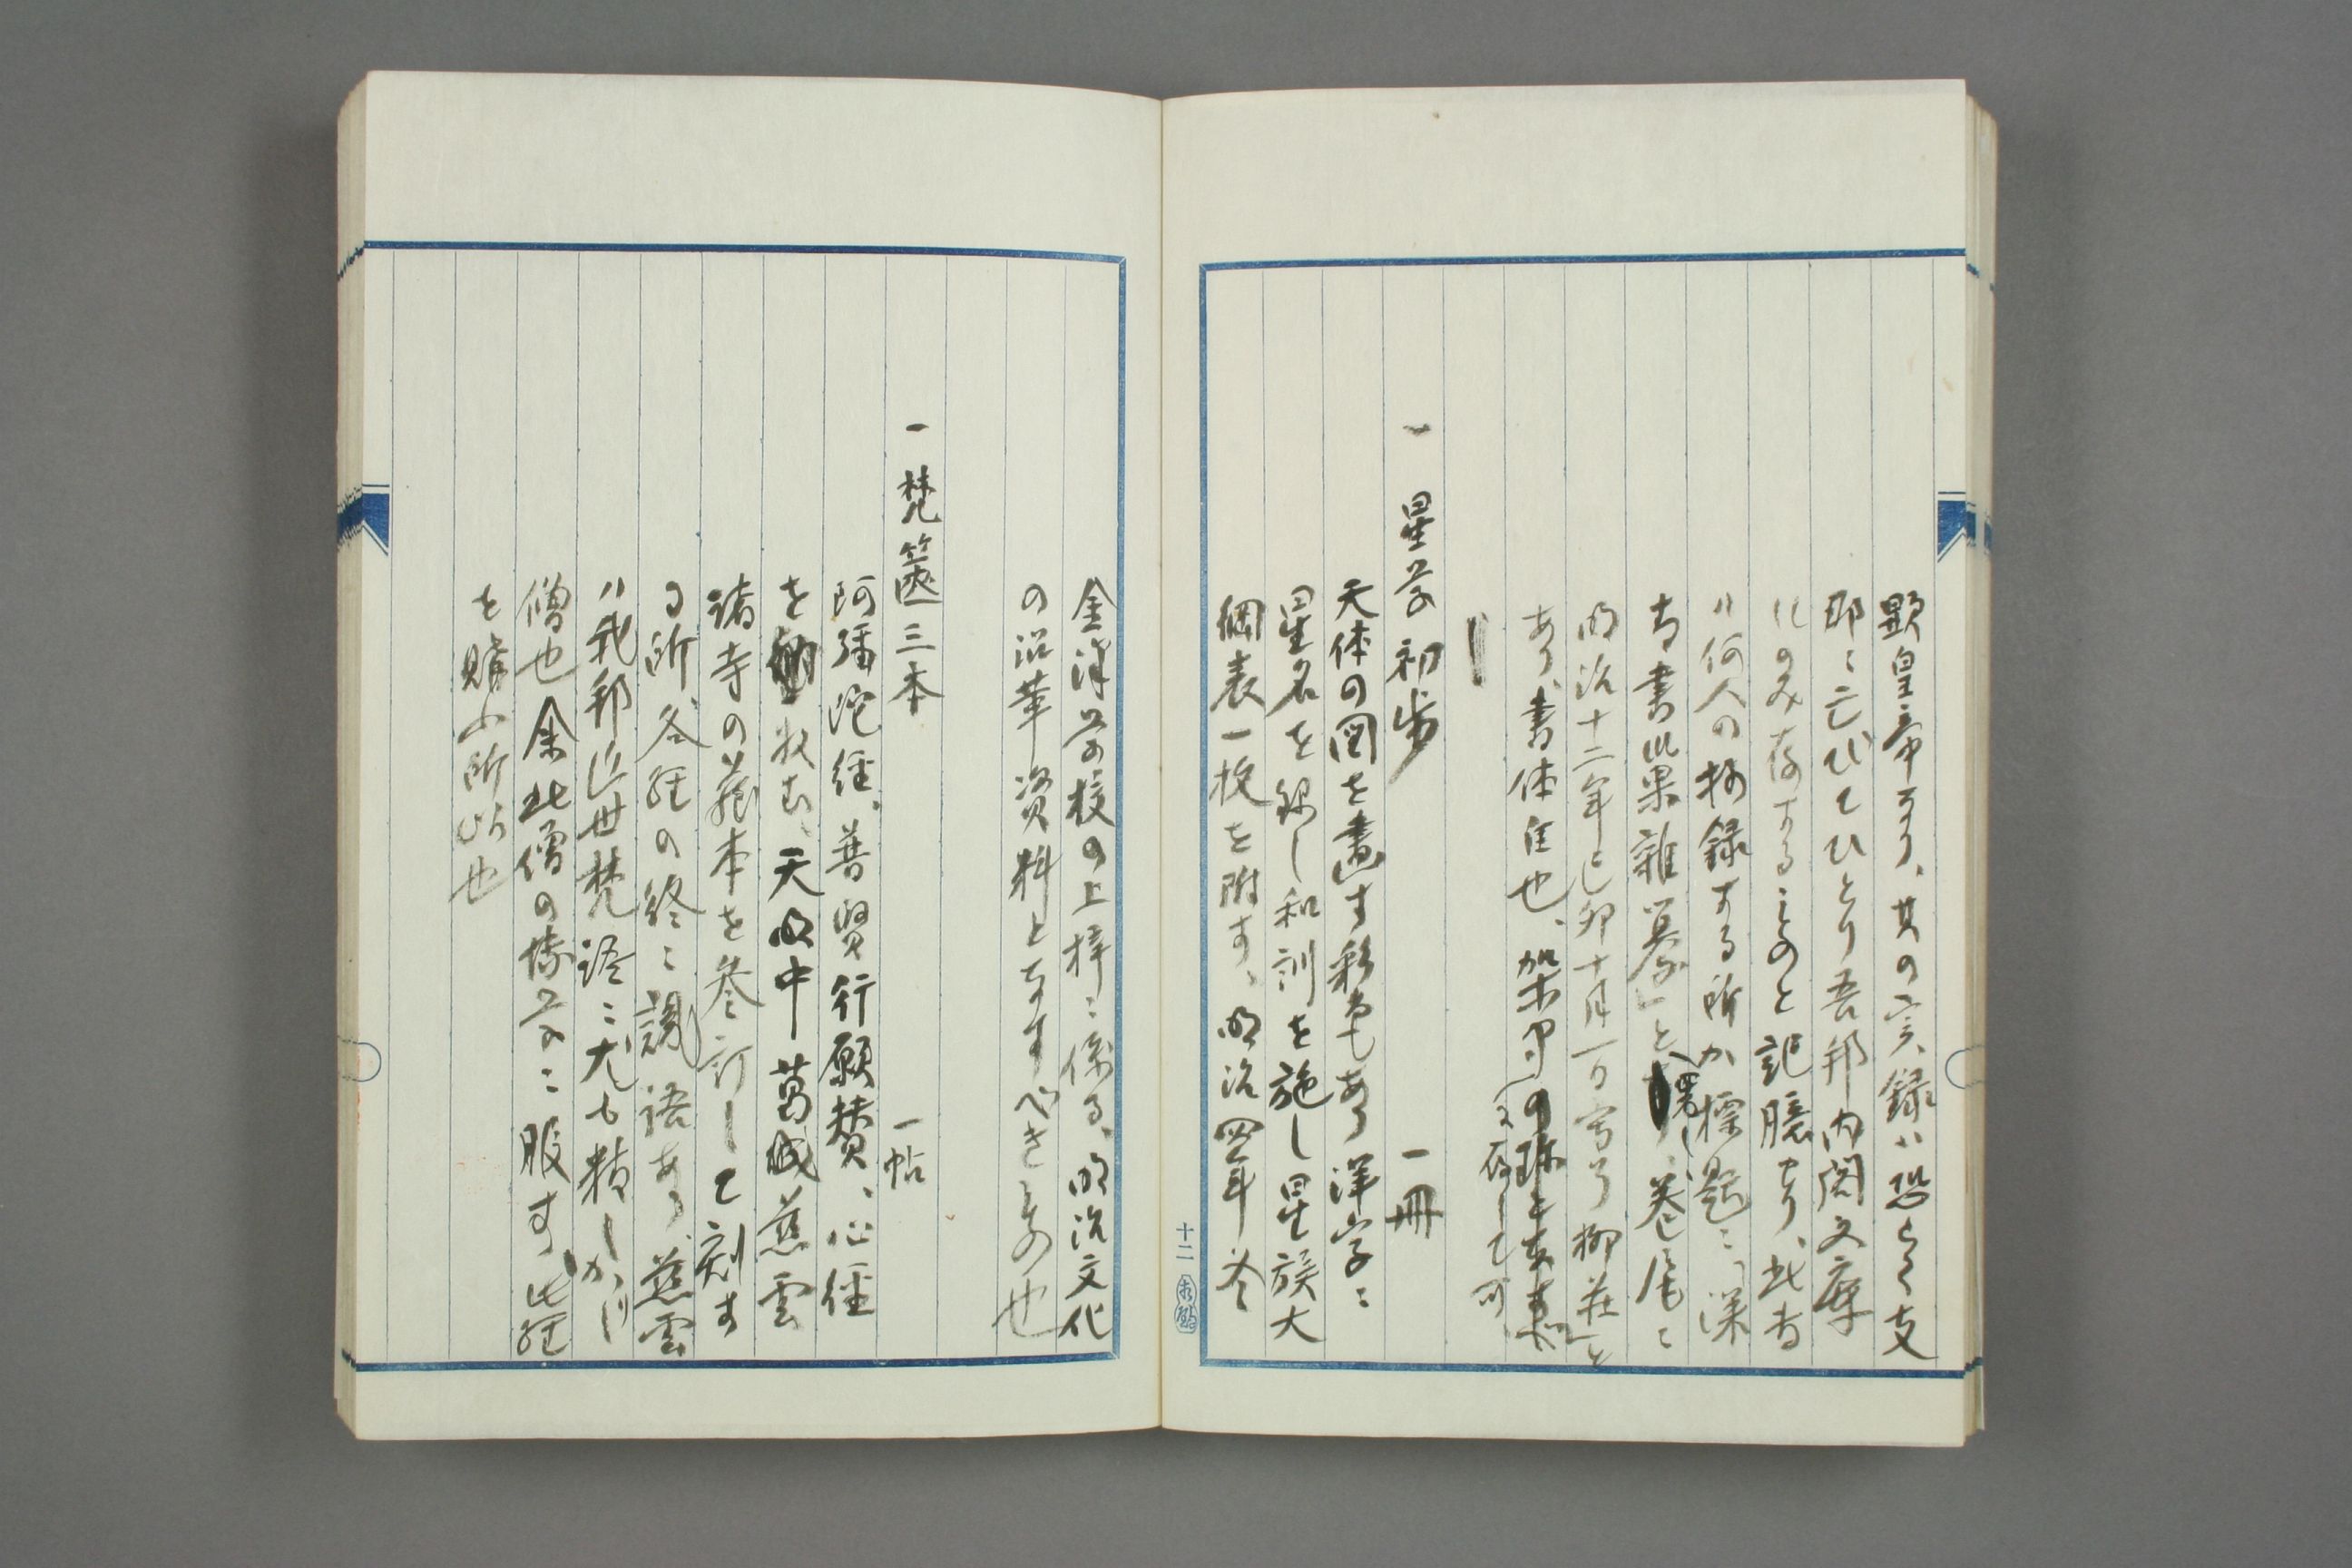 顕皇帝なり、其の実録ハ恐らく支
那ニ亡びてひとり吾邦内閣文庫
ハのみ存するものと記臆せり、此書
ハ何人の抄録する所か標題ニ深
書叢雑纂」と署し、巻尾ニ
明治十二年己卯十月一日写了柳荘」と
あり、書体佳也、架中の
ニ存して可
一 星学初歩 一冊
天体の図を画す彩色もあり洋字ニ
星名を録し和訓を施し星族大
綱表一枚を附す、明治四年
十二
金沢学校の上梓ニ係る、明治文化
の沿革資料となすべきもの也
一 梵篋三本 一帖
阿彌陀経、普賢行願賛、心経
を収む、天明中葛城慈雲
諸寺の蔵本を参訂して刻す
る所、各経の終ニ識語あり、慈雲
ハ我邦近世梵語ニ尤も精しかりし
僧也余此僧の梵学ニ服す、此経
を購ふ所以也